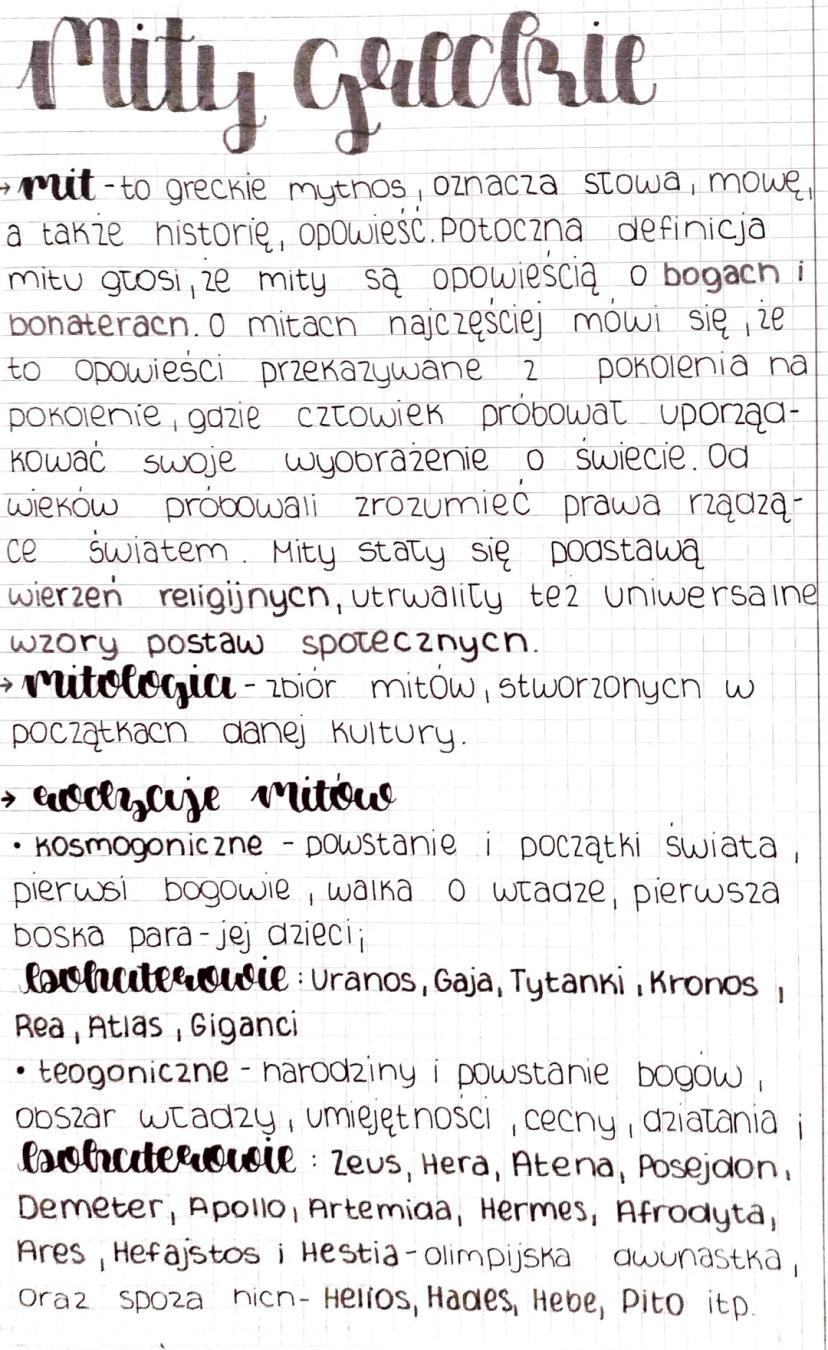 Mity greckie
→ mit - to greckie mythos, oznacza słowa, mowę,
a także historię, opowieść. Potoczna definicja
mitu głosi, że mity są opowieścią o bogach i
bohaterach. O mitach najczęściej mówi się, że
to opowieści przekazywane z pokolenia na
pokolenie, gdzie człowiek próbował uporzą-
kować swoje wyobrażenie o świecie. Od
wieków próbowali zrozumieć prawa rządzą-
ce światem. Mity stały się podstawą
wierzeń religijnych, utrwaliły też uniwersalne
wzory postaw społecznych.
→ mitologia - zbiór mitów, stworzonych w
początkach danej kultury.
→ rodzaje mitów
• kosmogoniczne - powstanie i początki świata,
pierwsi bogowie, walka o władze, pierwsza
boska para - jej dzieci;
bohaterowie: Uranos, Gaja, Tytanki, Kronos,
Rea, Atlas, Giganci
• teogoniczne - narodziny i powstanie bogów,
obszar władzy, umiejętności, cechy, działania;
bohaterowie: Zeus, Hera, Atena, Posejdon,
Demeter, Apollo, Artemida, Hermes, Afrodyta,
Ares, Hefajstos i Hestia - olimpijska dwunastka,
oraz spoza nich - Helios, Hades, Hebe, Pito itp.